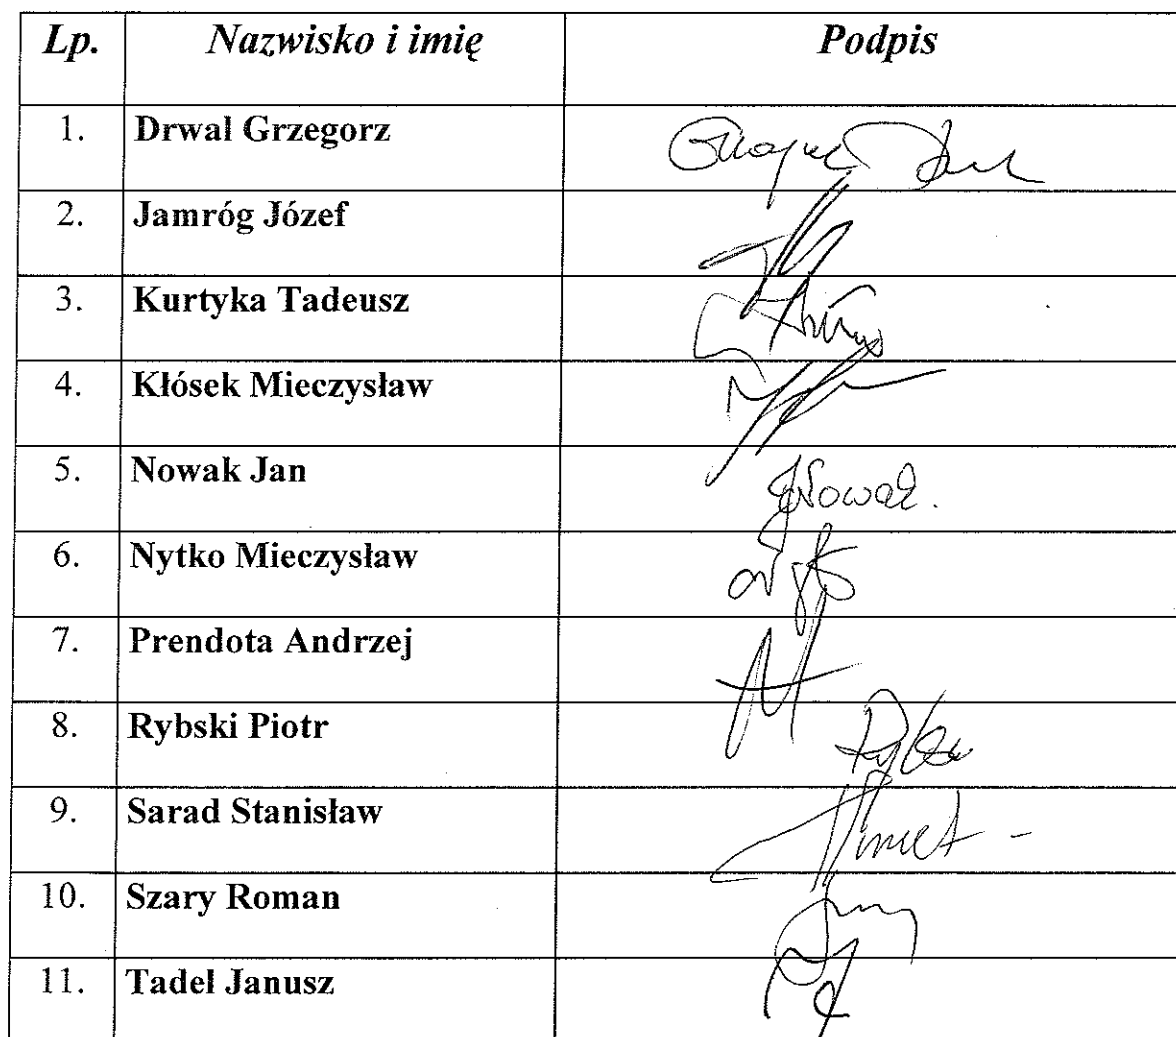 Lp. Nazwisko i imię Podpis
1. Drwal Grzegorz
2. Jamróg Józef
3. Kurtyka Tadeusz
4. Kłósek Mieczysław
5. Nowak Jan JNowak.
6. Nytko Mieczysław
7. Prendota Andrzej
8. Rybski Piotr
9. Sarad Stanisław
10. Szary Roman
11. Tadel Janusz